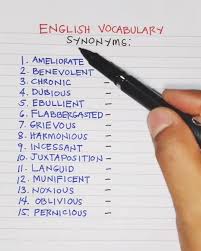 ENGLISH VOCABULARY
SYNONYMS:
1. AMELIORATE -
2. BENEVOLENT -
3. CHRONIC -
4. DUBIOUS -
5. EBULLIENT -
6. FLABBERGASTED -
7. GRIEVOUS -
8. HARMONIOUS -
9. INCESSANT -
10. JUXTAPOSITION -
11. LANGUID -
12. MUNIFICENT -
13. NOXIOUS -
14. OBLIVIOUS -
15. PERNICIOUS -